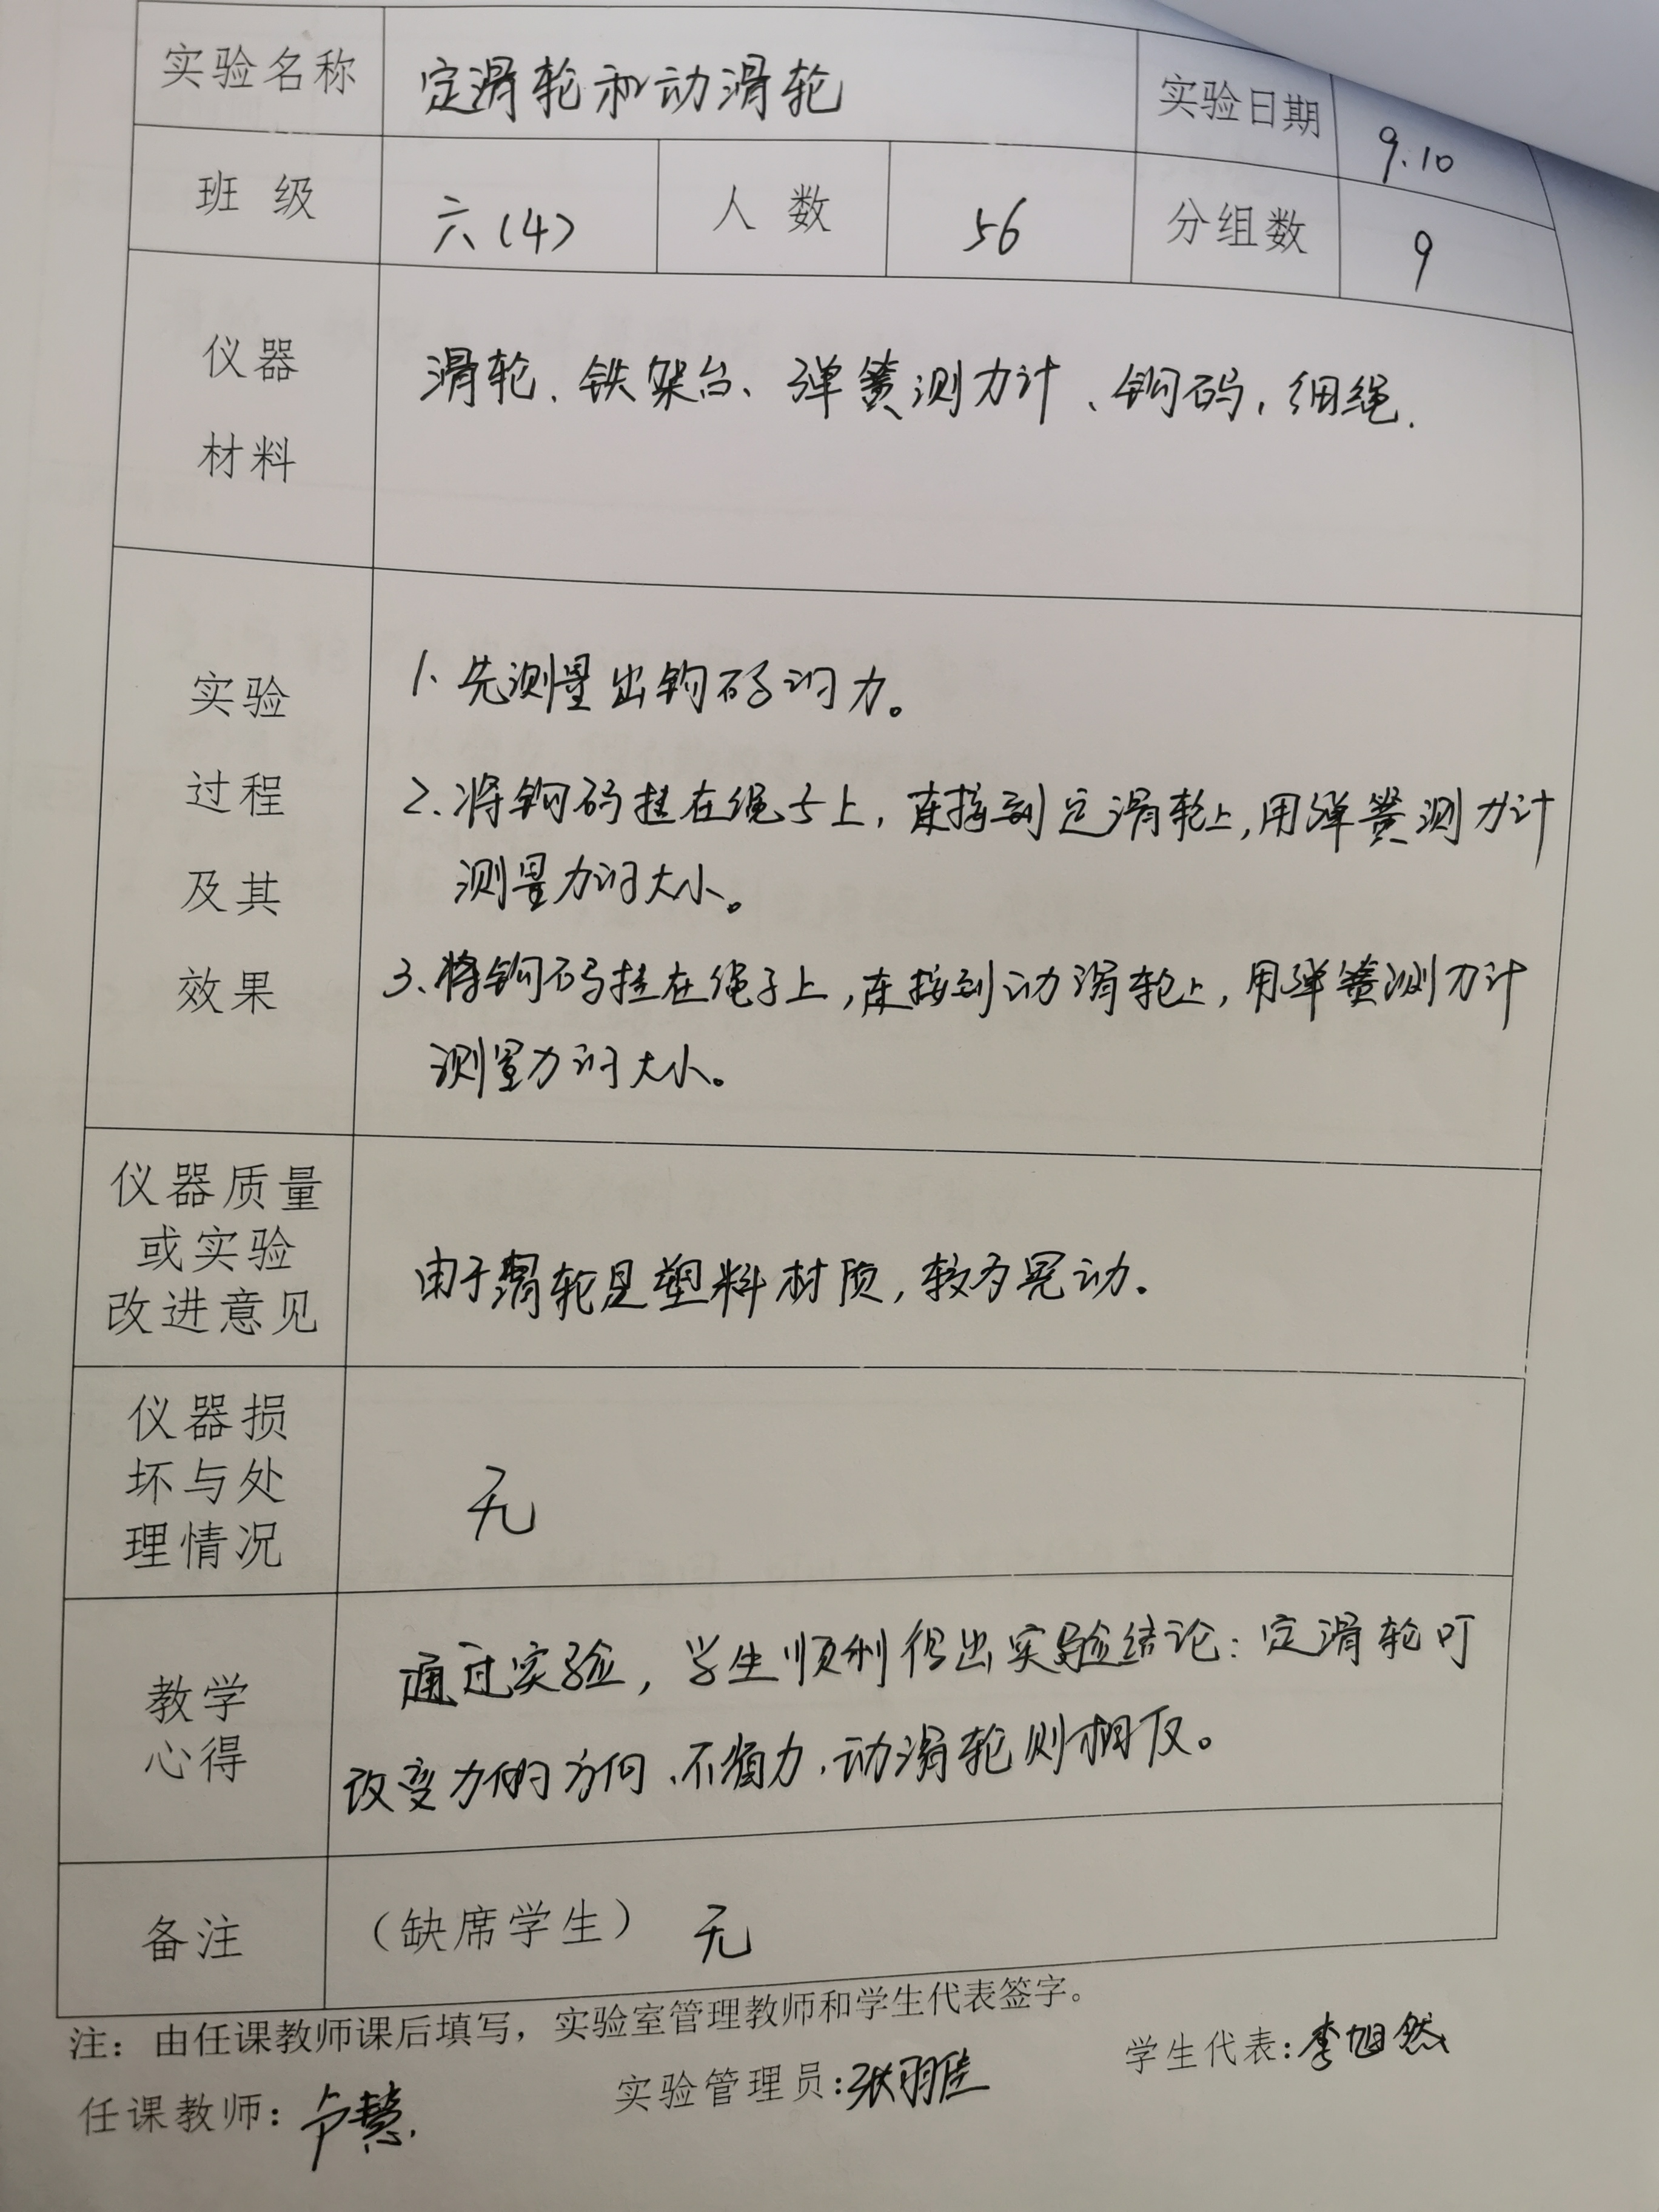 实验名称 定滑轮和动滑轮 实验日期 9.10
班级 六(4) 人数 56 分组数 9
仪器
材料
滑轮、铁架台、弹簧测力计、钩码、细绳.
实验
过程
及其
效果
1、先测量出钩码的力。
2、将钩码挂在绳子上,连接到定滑轮上,用弹簧测力计
测量力的大小。
3、将钩码挂在绳子上,连接到动滑轮上,用弹簧测力计
测量力的大小。
仪器质量
或实验
改进意见
由于滑轮是塑料材质,较为晃动.
仪器损
坏与处
理情况
无
教学
心得
通过实验,学生顺利得出实验结论:定滑轮可
改变力的方向、不省力,动滑轮则相反。
备注 (缺席学生) 无
注:由任课教师课后填写,实验室管理教师和学生代表签字。
任课教师:卢慧. 实验管理员:张羽佳 学生代表:李旭然